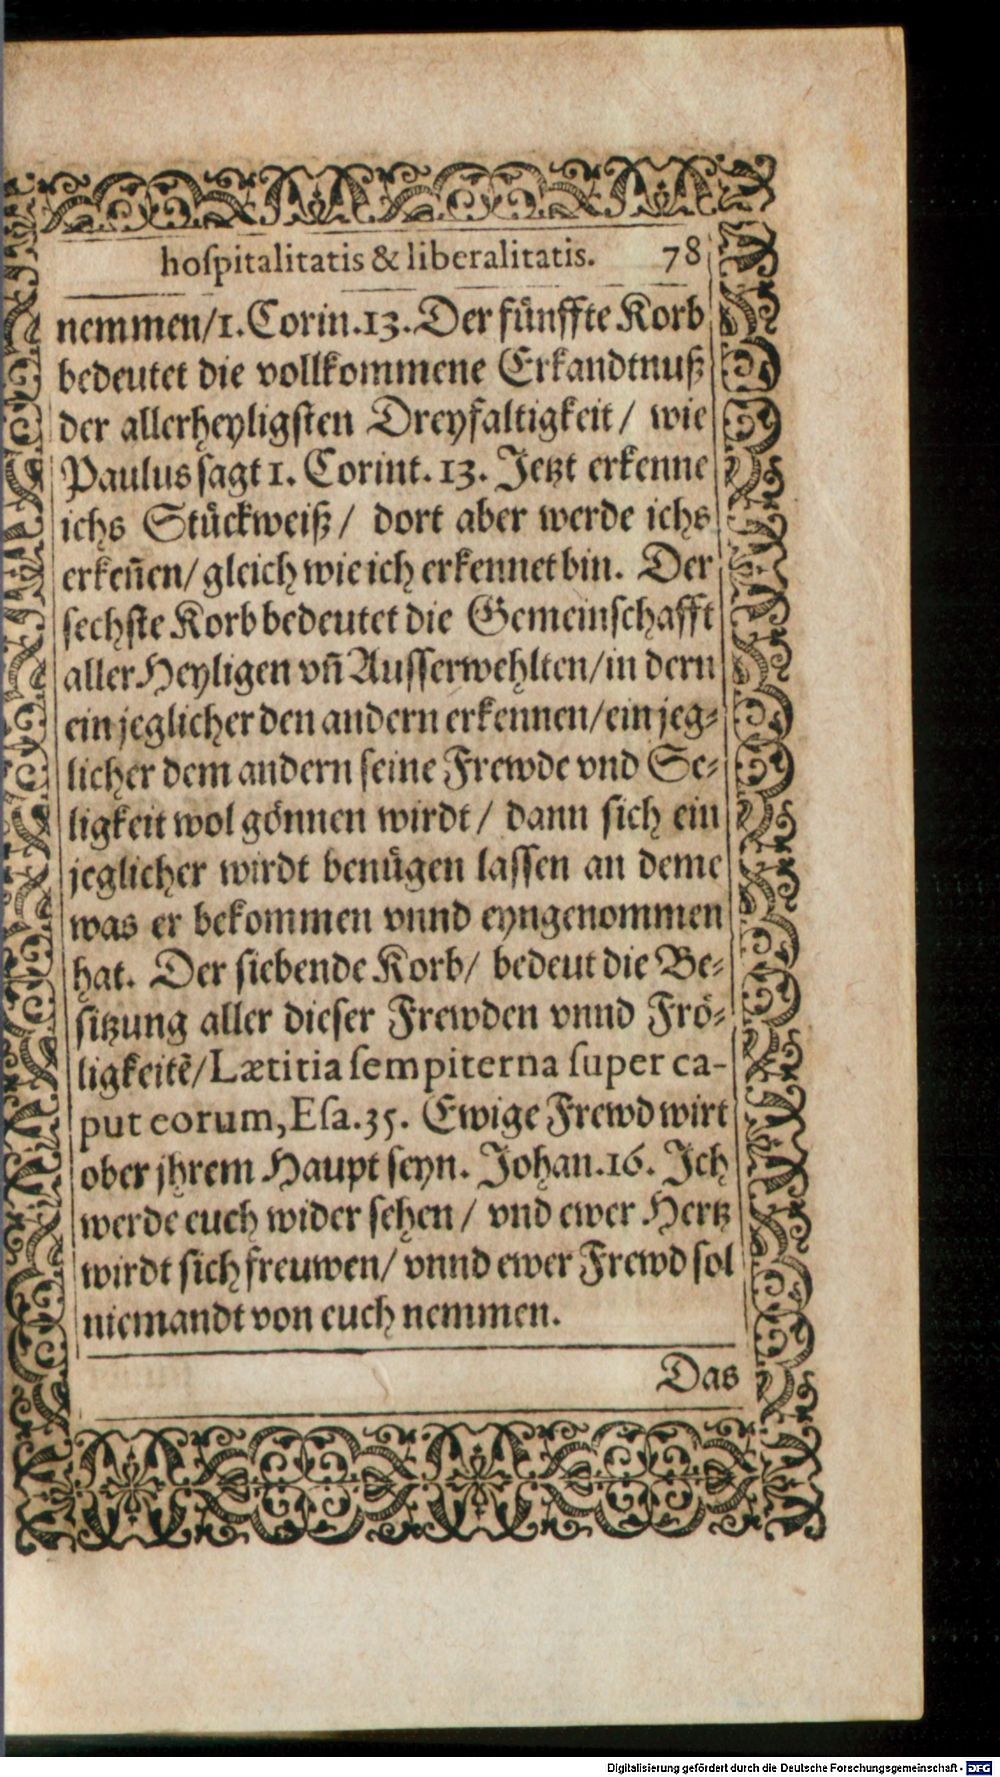 hoſpitalitatis & liberalitatis. 78
nemmen/1. Corin. 13. Der fuͤnffte Korb
bedeutet die vollkommene Erkandtnuß
der allerheyligſten Dreyfaltigkeit/ wie
Paulus ſagt 1. Corint. 13. Jetzt erkenne
ichs Stuͤckweiß/ dort aber werde ichs
erkeñen/ gleich wie ich erkennet bin. Der
ſechſte Korb bedeutet die Gemeinſchafft
aller Heyligen vñ Auſſerwehlten/ in dern
ein jeglicher den andern erkennen/ ein jeg⸗
licher dem andern ſeine Frewde vnd Se⸗
ligkeit wol goͤnnen wirdt/ dann ſich ein
jeglicher wirdt benuͤgen laſſen an deme
was er bekommen vnnd eyngenommen
hat. Der ſiebende Korb/ bedeut die Be⸗
ſitzung aller dieſer Frewden vnnd Froͤ⸗
ligkeitẽ/ Lætitia ſempiterna ſuper ca-
put eorum, Eſa. 35. Ewige Frewd wirt
ober jhrem Haupt ſeyn. Johan. 16. Jch
werde euch wider ſehen/ vnd ewer Hertz
wirdt ſich freuwen/ vnnd ewer Frewd ſol
niemandt von euch nemmen.
Das
Digitalisierung gefördert durch die Deutsche Forschungsgemeinschaft - DFG